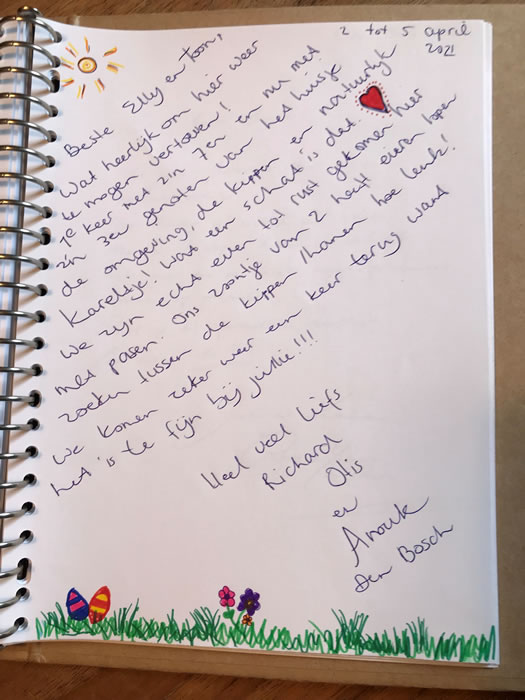 2 tot 5 april
2021
Beste Elly en Toon,
Wat heerlijk om hier weer
te mogen vertoeven!
1e keer met z'n 7en en nu met
z'n 3en genoten van het huisje
de omgeving, de kippen en natuurlijk
Kareltje! Wat een schat is dat.
We zijn echt even tot rust gekomen hier
met pasen. Ons zoontje van 2 heeft eieren lopen
zoeken tussen de kippen/hanen hoe leuk!
We komen zeker weer een keer terug want
het is te fijn bij jullie!!!
Heel veel liefs
Richard
Olis
en
Anouk
Den Bosch